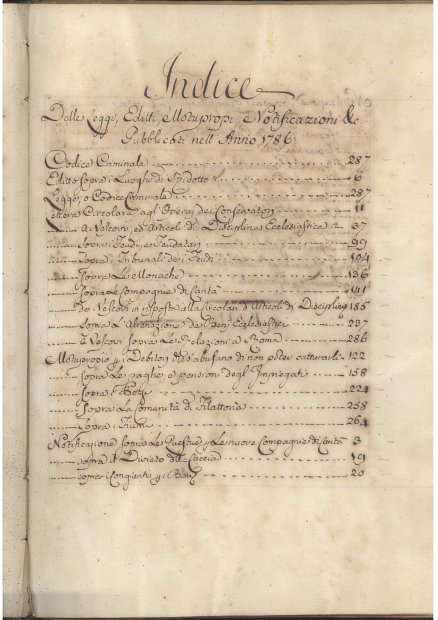 Indice
Delle Leggi, Editti, Motupropi, Notificazioni &c.
Pubblicati nell'Anno 1786
Codice Criminale 287
Editto sopra i Luoghi di 6
Legge, o Codice Criminale 287
Lettera Circolare agl'Operaj dei Conservatorj 11
a Vescovi, ed Articoli di Disciplina Ecclesiastica 37
sopra i Feudi, e Feudatarj 99
sopra i Tribunali dei Feudi 104
sopra Le Monache 136
sopra Le Compagnie di Carità 141
dei Vescovi in risposta alla Circolare d'Articoli di Disciplina 185
sopra L'Alienazione dei Beni Ecclesiastici 237
a Vescovi sopra Le Relazioni a Roma 286
Motuproprio di non poter catturarli 122
sopra Le paghe, e pensioni degl'Impiegati 158
sopra i 224
sopra La Comunità di Filattiera 258
sopra Fiumi 264
Notificazione sopra Le Questue Le nuove Compagnie di Carità 3
sopra il Divieto delle Caccie 19
sopra i Congiunti 20